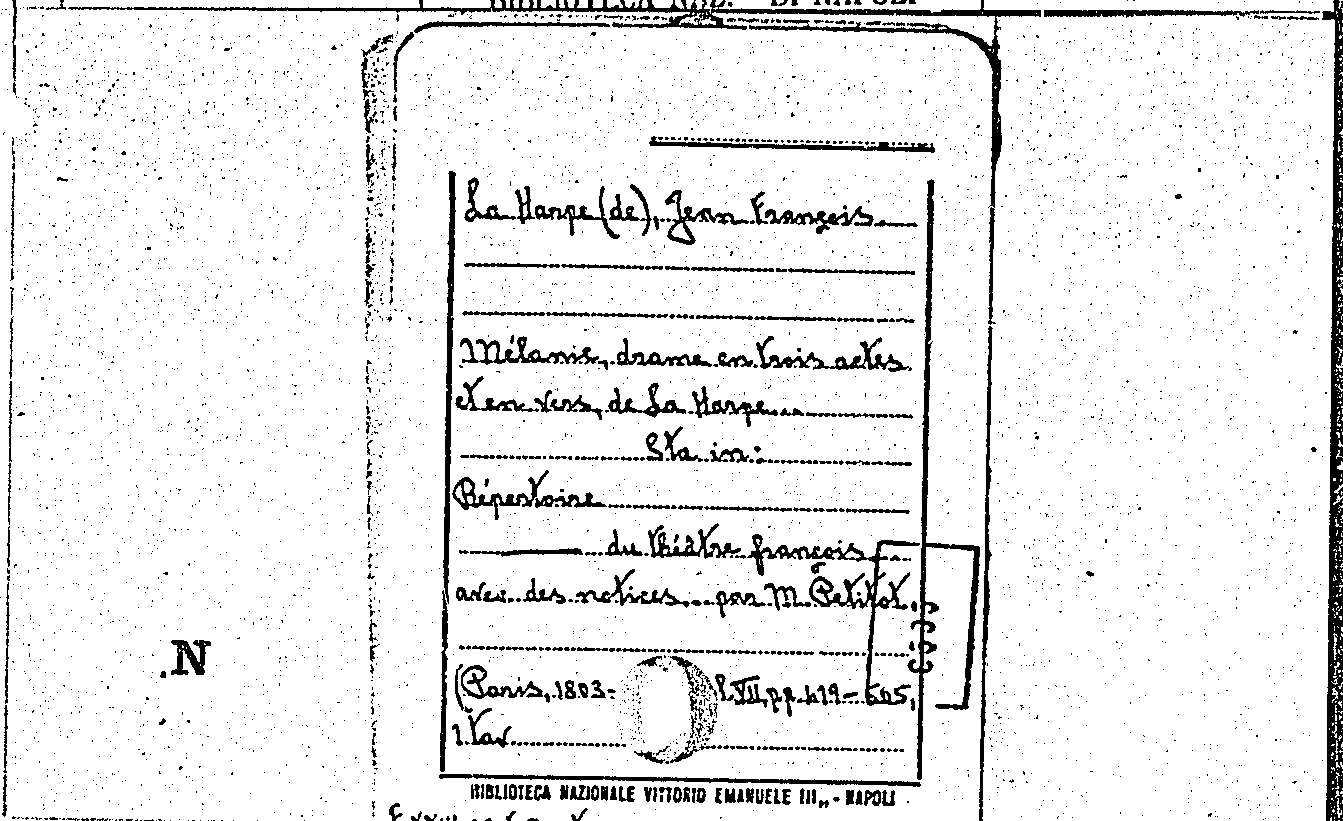 BIBLIOTECA NAZ. DI NAPOLI
La Harpe (de), Jean François.
Mélanie, drame en trois actes
et en vers, de La Harpe...
Sta in:
Répertoire
du théâtre françois...
avec des notices... par M. Petitot.
(Paris, 1803- VII, pp. 419-505,
1 tav.
.N
BIBLIOTECA NAZIONALE VITTORIO EMANUELE III„ - NAPOLI